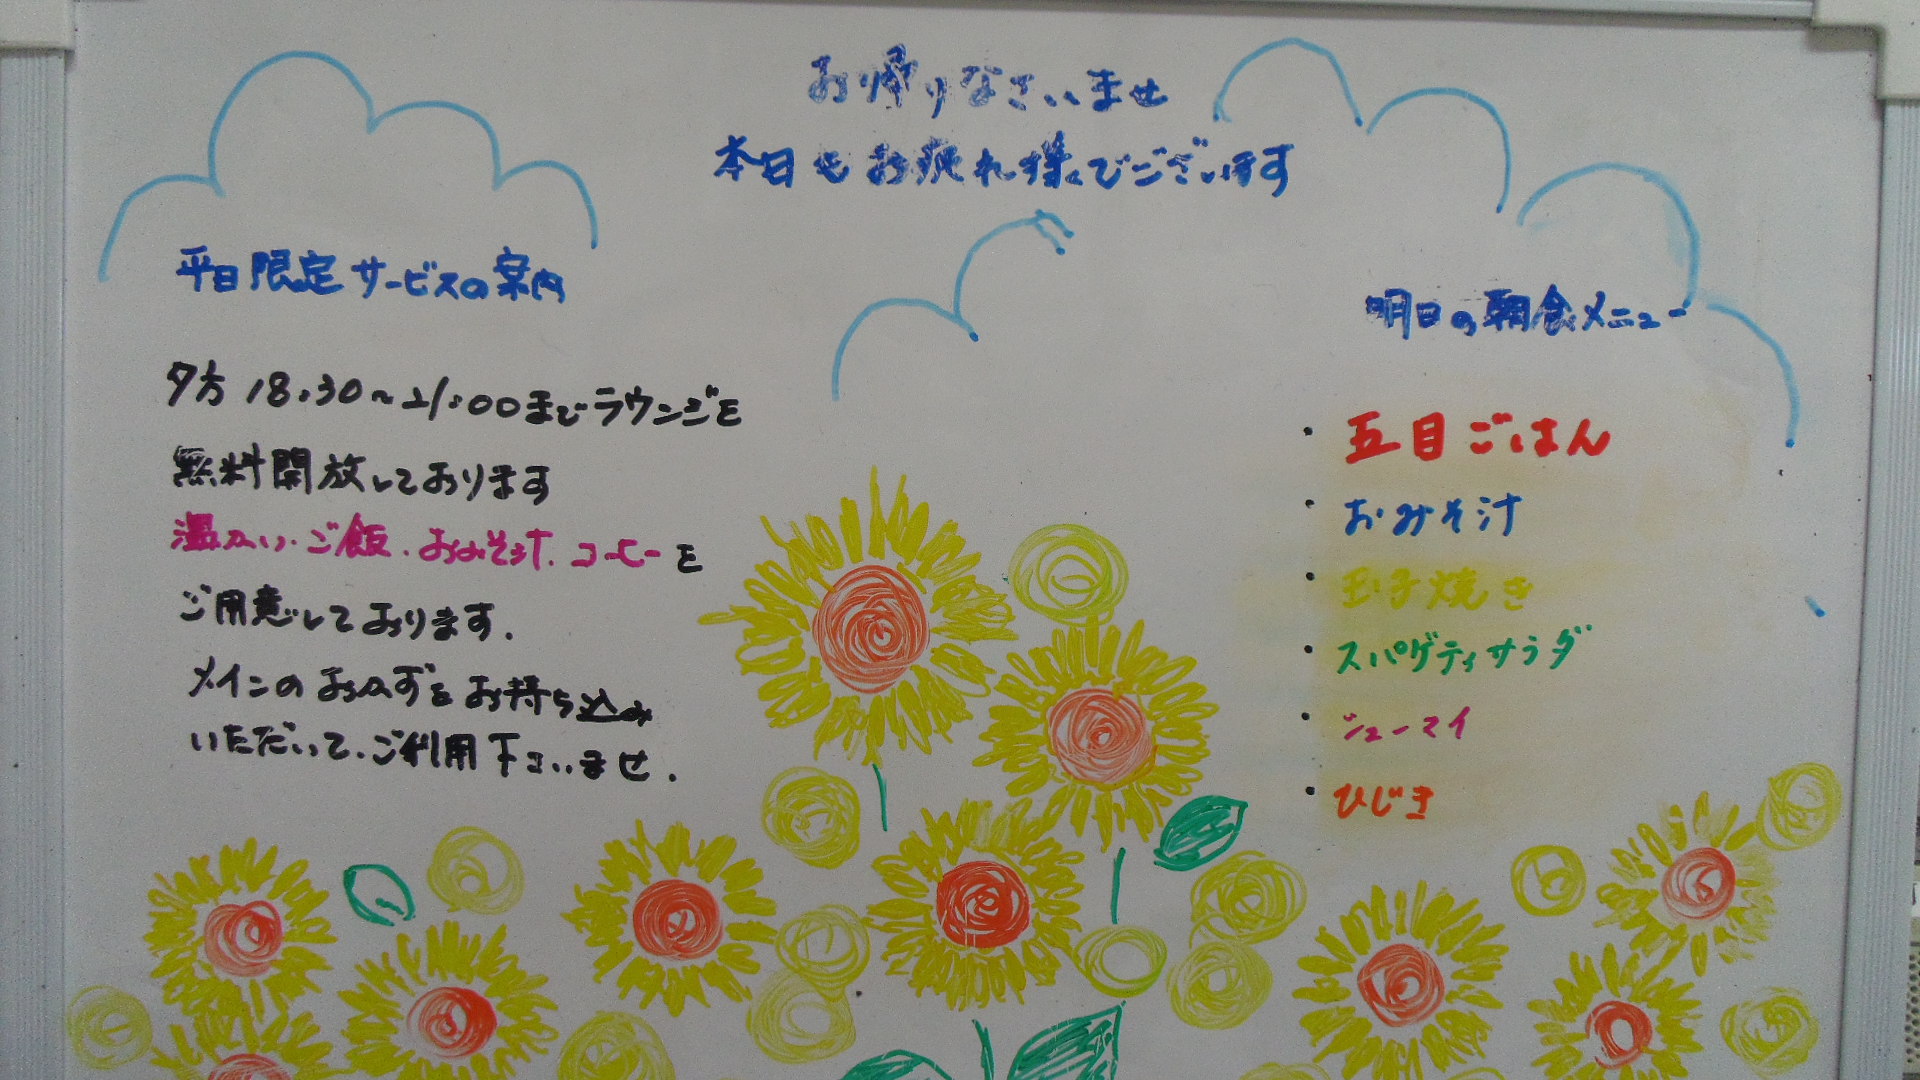 お帰りなさいませ
本日もお疲れ様でございます
平日限定サービスの案内
夕方 18:30~21:00までラウンジを
無料開放しております
温かい・ご飯・おみそ汁・コーヒーを
ご用意しております.
メインのおかずをお持ち込み
いただいて、ご利用下さいませ.
明日の朝食メニュー
・五目ごはん
・おみそ汁
・玉子焼き
・スパゲティサラダ
・シューマイ
・ひじき